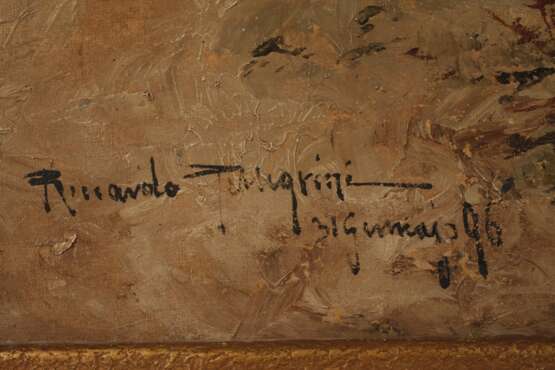 Riccardo Pellegrini
31 Gennaio 96